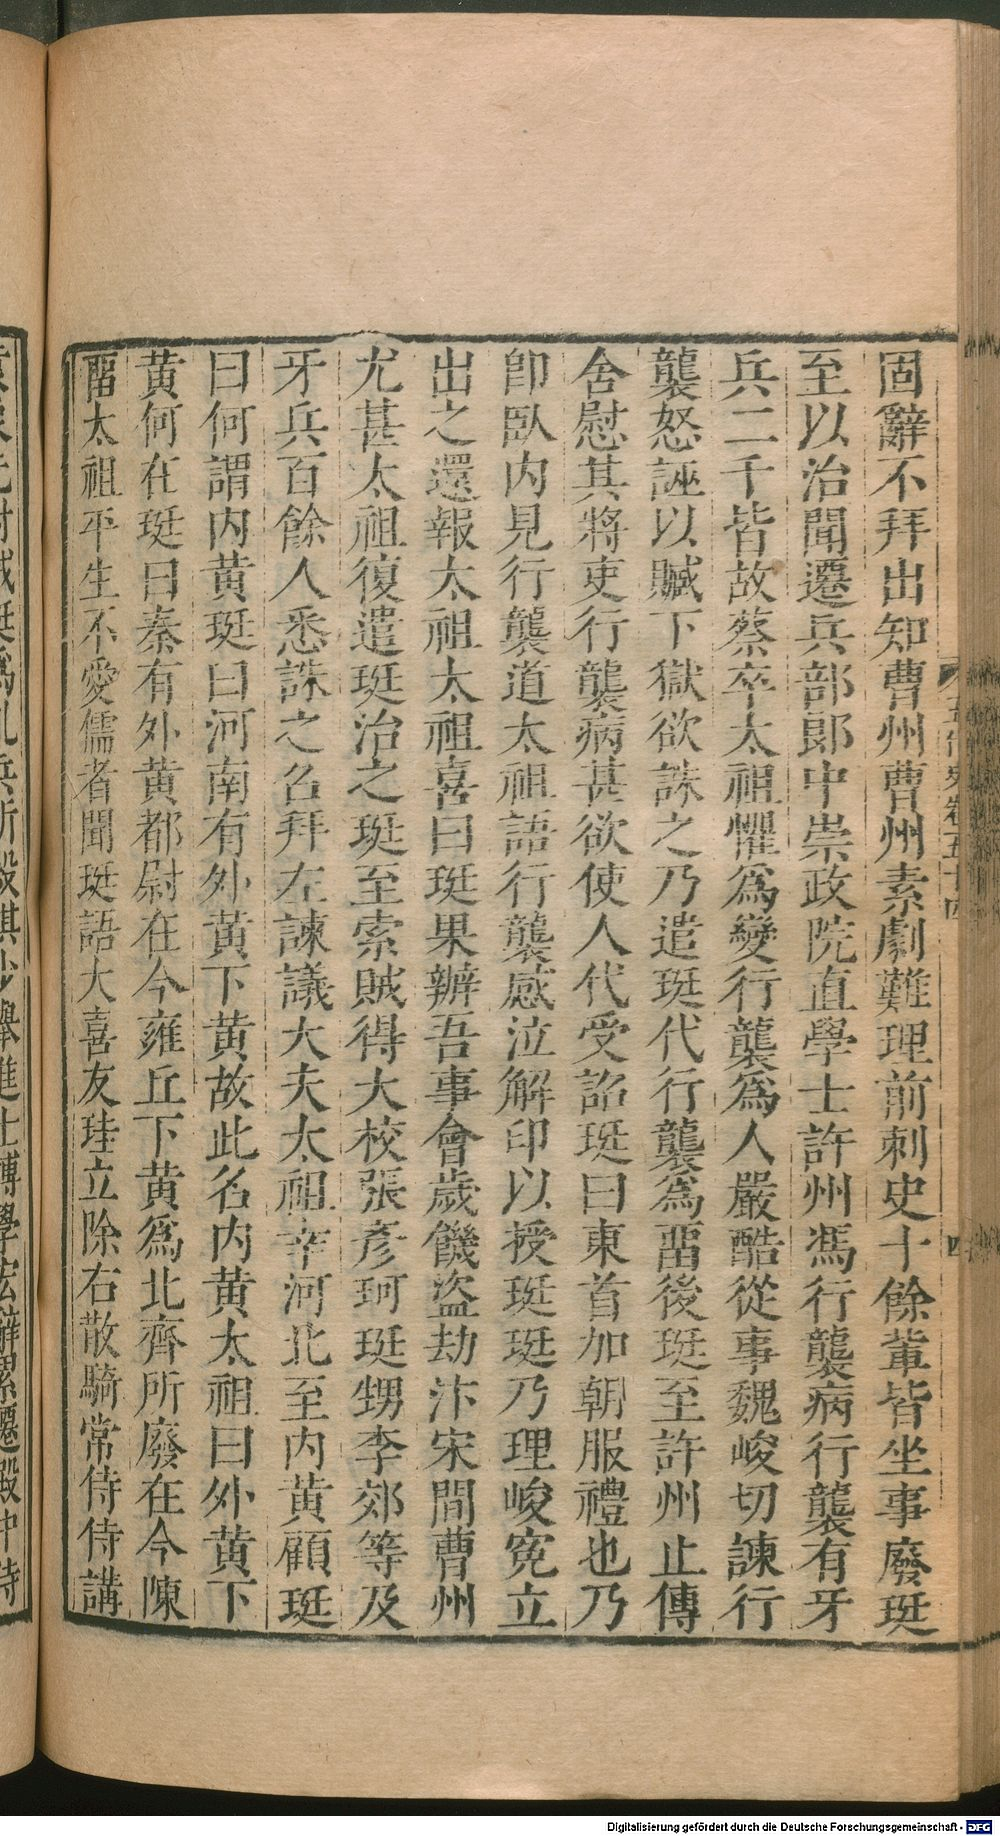 固辭不拜出知曹州曹州素劇難理前刺史十餘輩皆坐事廢珽
至以治聞遷兵部郎中崇政院直學士許州馮行襲病行襲有牙
兵二千皆故蔡卒太祖懼爲變行襲爲人嚴酷從事魏峻切諫行
襲怒誣以贓下獄欲誅之乃遣珽代行襲爲畱後珽至許州止傳
舍慰其將吏行襲病甚欲使人代受詔珽曰東首加朝服禮也乃
卽臥内見行襲道太祖語行襲感泣解印以授珽珽乃理峻寃立
出之還報太祖太祖喜曰珽果辦吾事會歲饑盜劫汴宋間曹州
尤甚太祖復遣珽治之珽至索賊得大校張彥珂珽甥李郊等及
牙兵百餘人悉誅之召拜左諫議大夫太祖幸河北至内黄顧珽
曰何謂内黄珽曰河南有外黄下黄故此名内黄太祖曰外黄下
黄何在珽曰秦有外黄都尉在今雍丘下黄爲北齊所廢在今陳
畱太祖平生不愛儒者聞珽語大喜友珪立除右散騎常侍侍講
五代史卷五十四
四
Digitalisierung gefördert durch die Deutsche Forschungsgemeinschaft - DFG